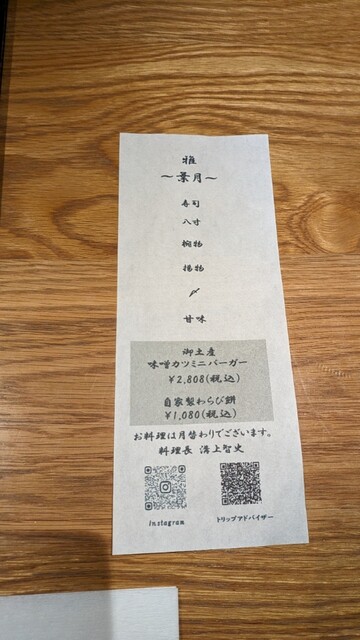 雅
～葉月～
寿司
八寸
椀物
揚物
〆
甘味
御土産
味噌カツミニバーガー
¥2,808(税込)
自家製わらび餅
¥1,080(税込)
お料理は月替わりでございます。
料理長 溝上智史
Instagram
トリップアドバイザー